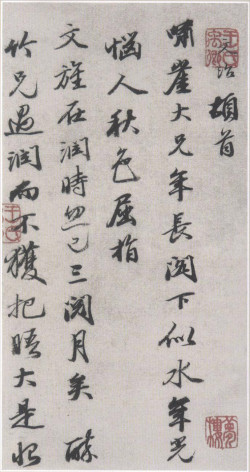 文治頓首
嘯崖大兄年長閣下似水年光
惱人秋色屈指
文旌在潤時忽已三閱月矣
竹兄過潤而不獲把晤大是
夢樓